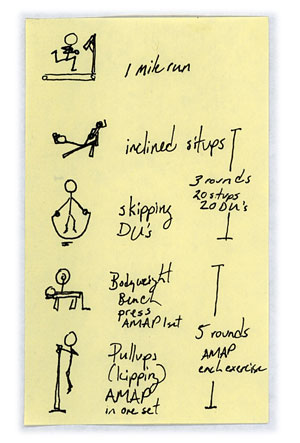 1 mile run
inclined situps
3 rounds
20 stups
20 DU's
skipping
DU's
Bodyweight
Bench
press
AMAP 1 set
5 rounds
AMAP
each exercise
Pullups
(kipping)
AMAP
in one set